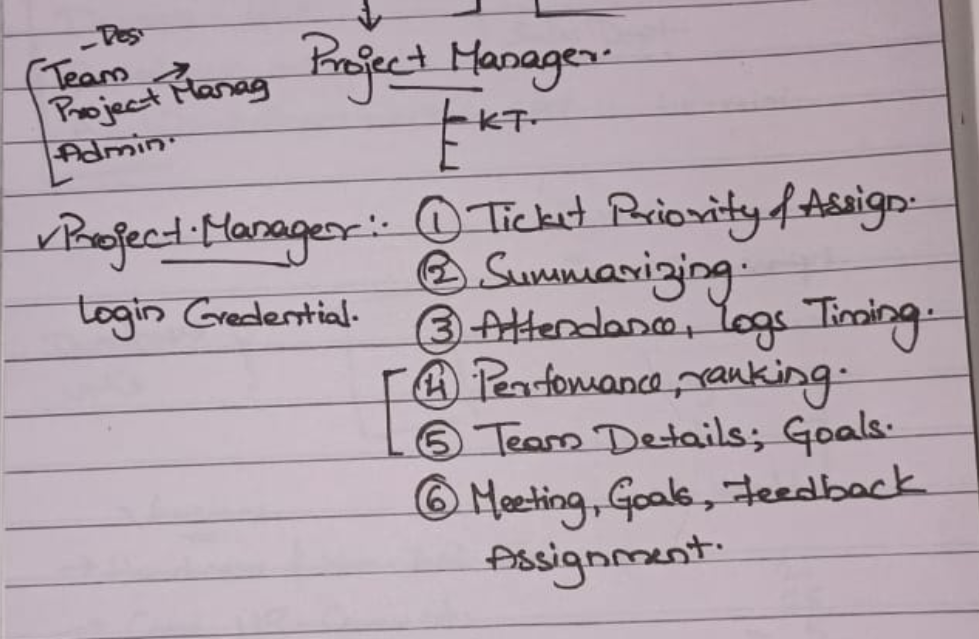 - Des
Team →
Project Manag
Admin.
Project Manager.
KT.
✓Project Manager :-
Login Credential.
① Ticket Priority & Assign.
② Summarizing.
③ Attendance, Logs Timing.
④ Perfomance, ranking.
⑤ Team Details; Goals.
⑥ Meeting, Goals, Feedback
Assignment.